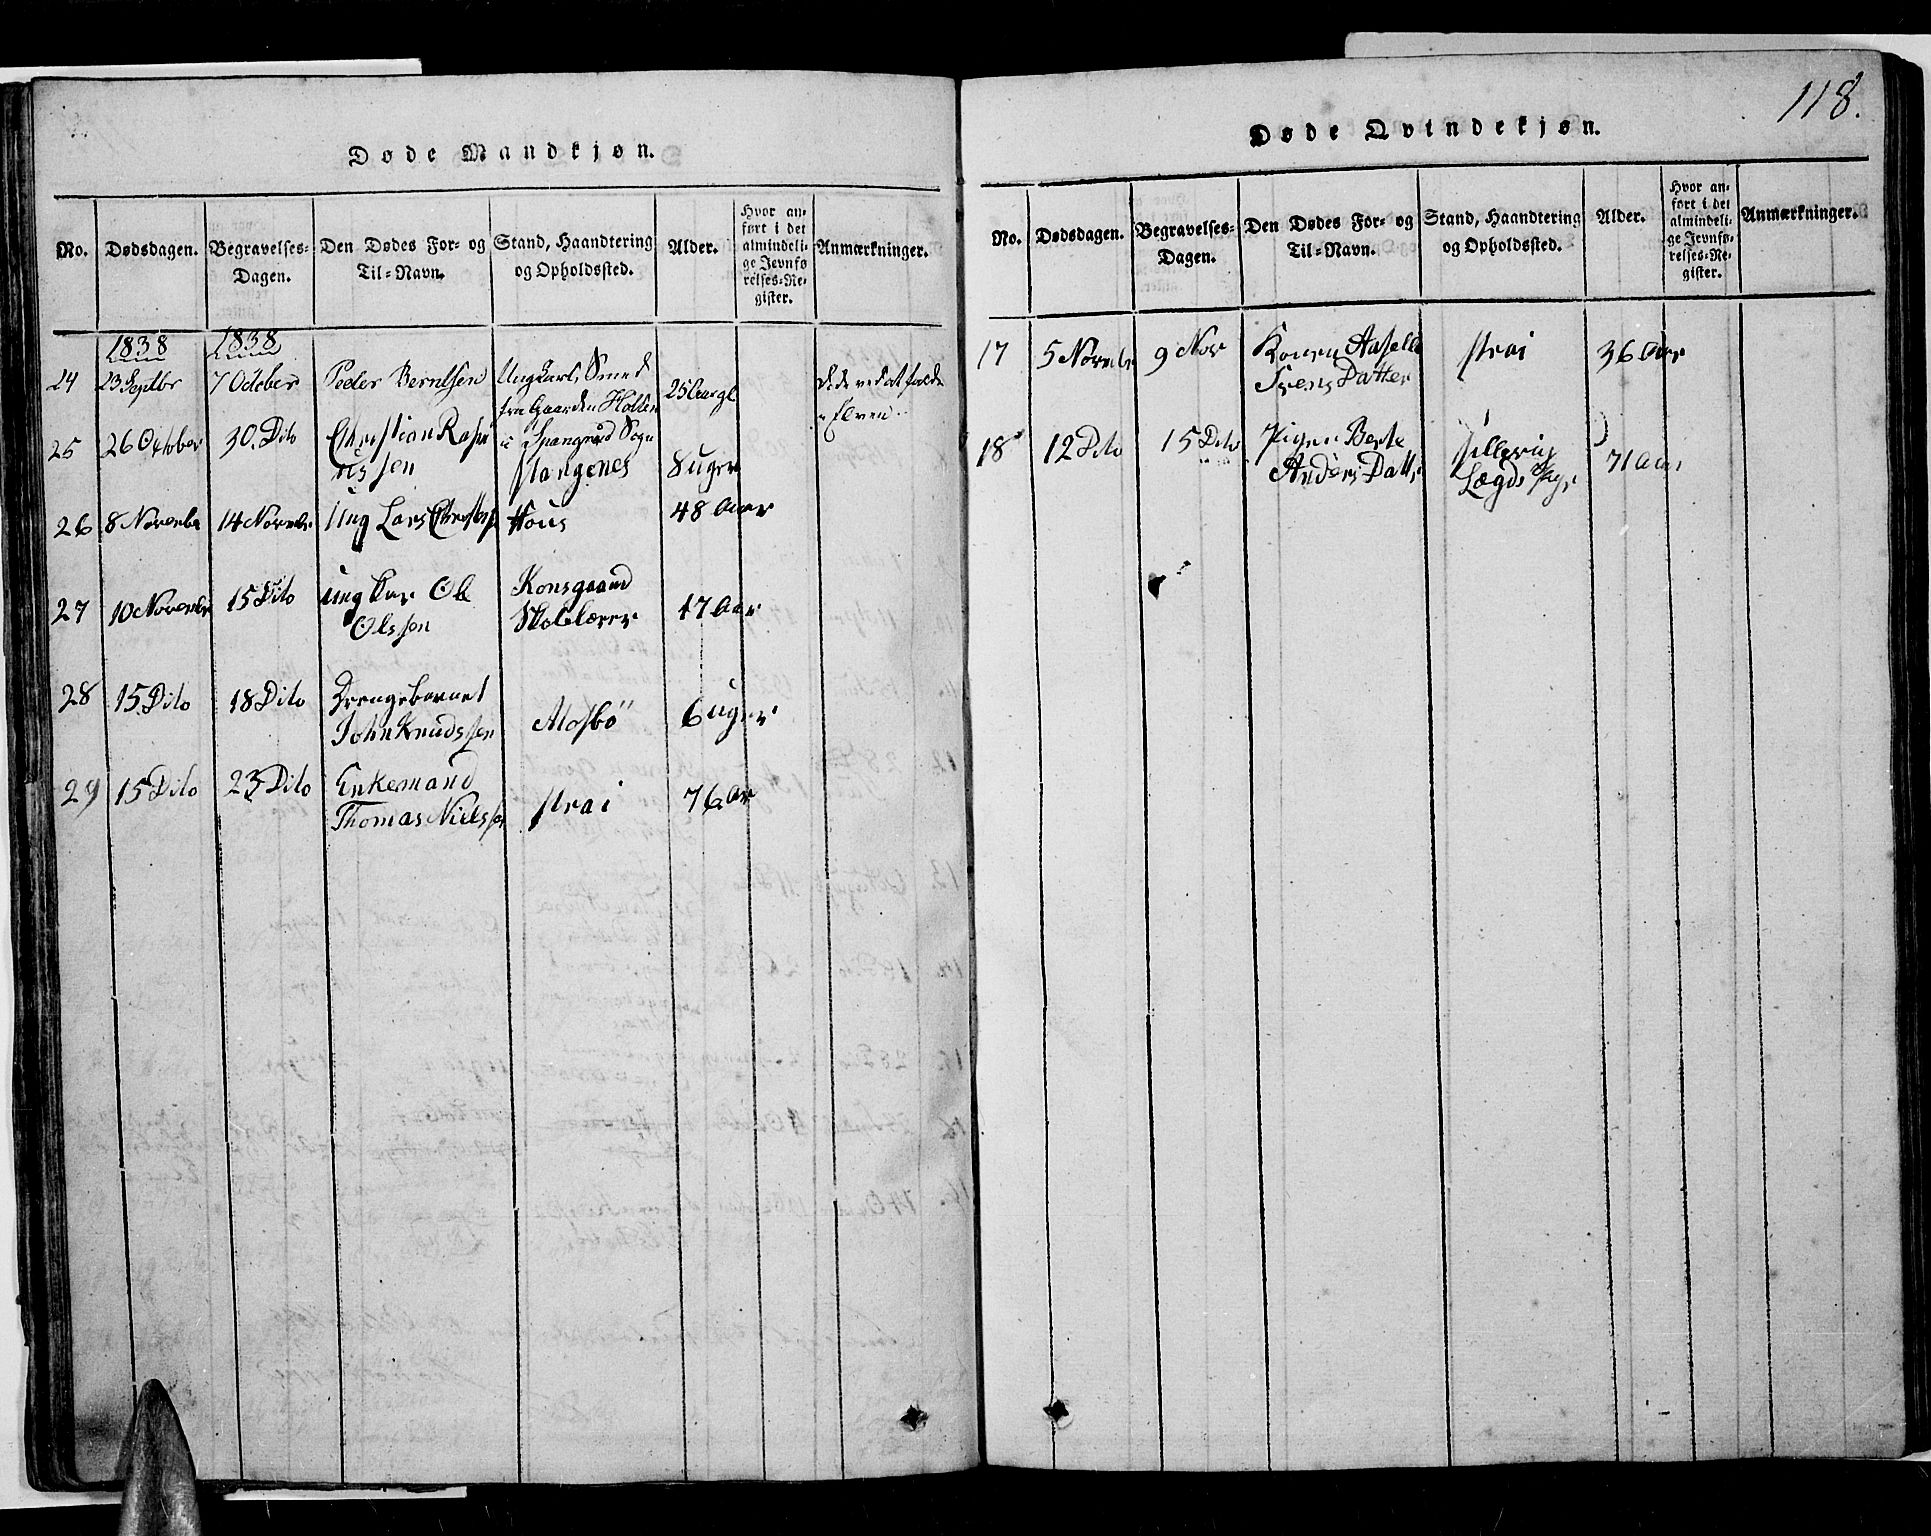 118.
Døde Mandkjøn.
No. Dødsdagen. Begravelses-Dagen. Den Dødes For- og Til-Navn. Stand, Haandtering og Opholdssted. Alder. Hvor anført i det almindelige Jevnførelses-Register. Anmærkninger.
1838 1838
24 23 Septbr 7 October Peder Berntsen Ungkarl Smed 25 Aar gl Døde ved at falde
fra Gaarden i Elven
25 26 October 30 Dito Christian Rasm i Sogn
ussen Stangenes 8 uger
26 8 Novembr 14 Novembr Ung Lars Hous 48 Aar
27 10 Novembr 15 Dito ungkar Ole Konsgaard 17 Aar
Olssen Skolelærer
28 15 Dito 18 Dito Drengebarnet
John Knudssen Mosbö 6 uger
29 15 Dito 23 Dito Enkemand
Thomas Nielssen strai 76 Aar
Døde Qvindekjøn.
No. Dødsdagen. Begravelses-Dagen. Den Dødes For- og Til-Navn. Stand, Haandtering og Opholdssted. Alder. Hvor anført i det almindelige Jevnførelses-Register. Anmærkninger.
17 5 Novembr 9 Nov Konen strai 36 Aar
Svens Datter
18 12 Dito 15 Dito Pigen Berte 71 Aar
Anders Datter Lægds Pige